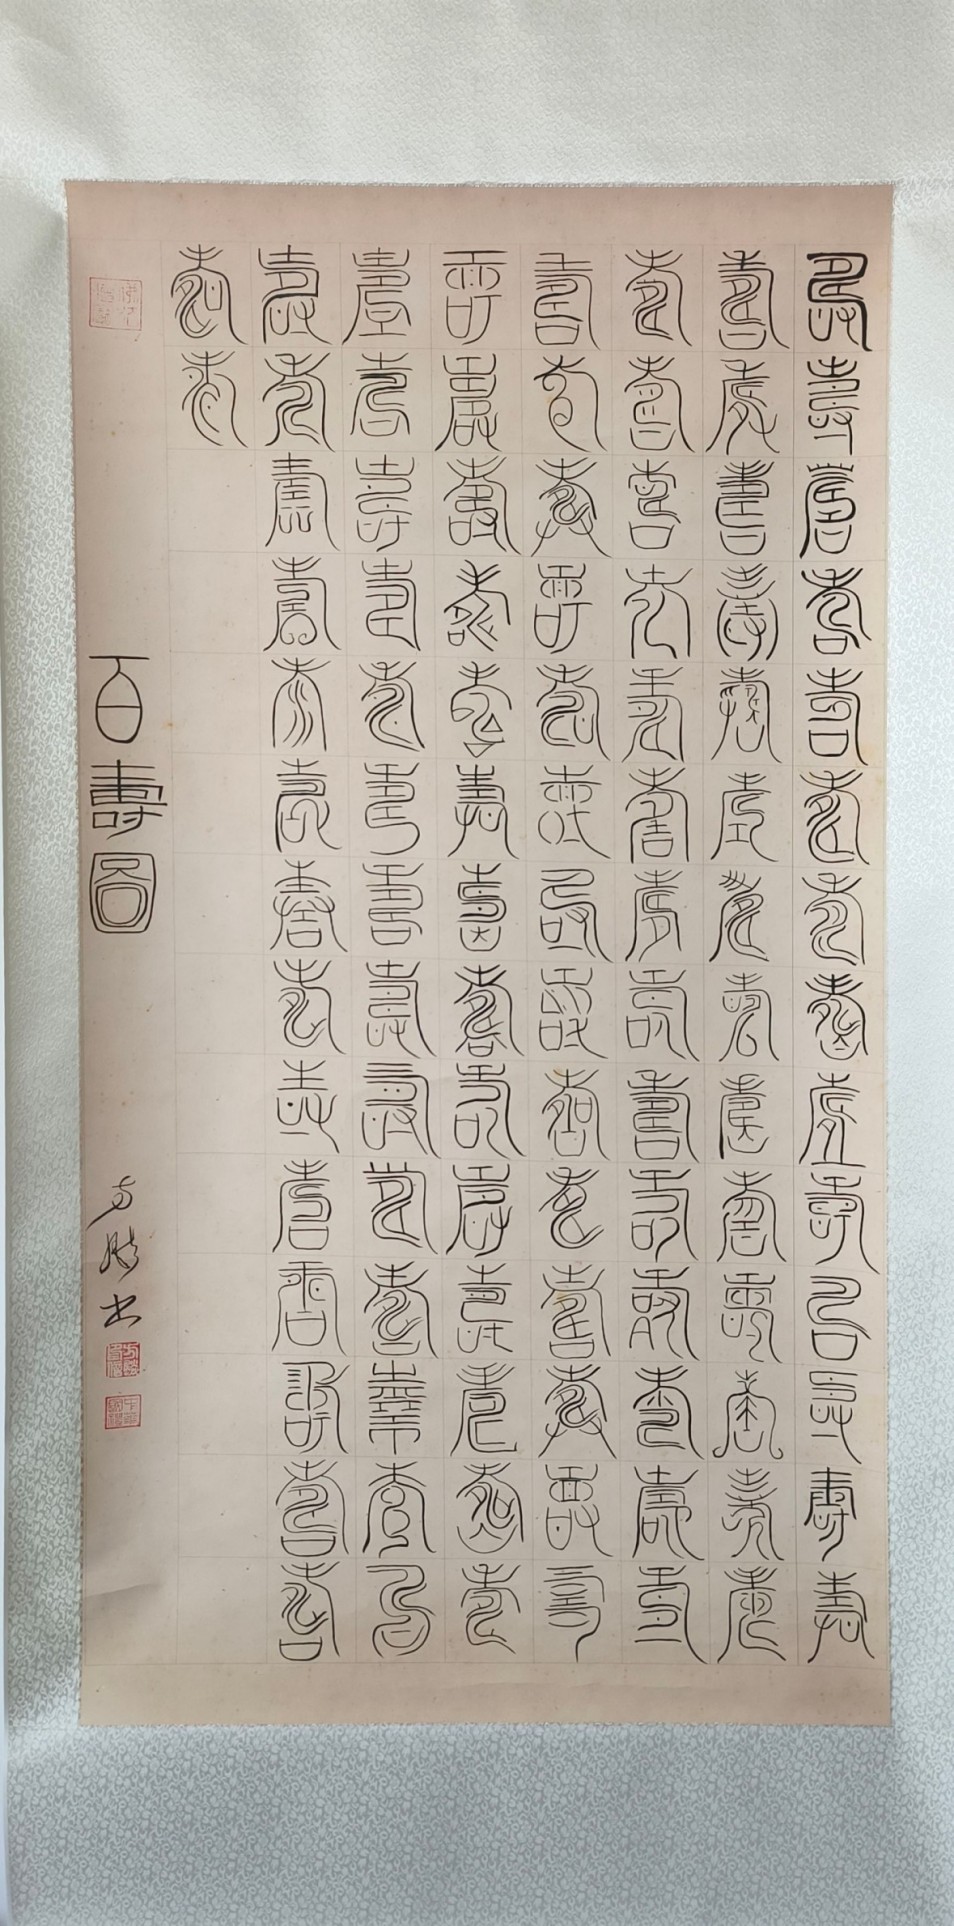 壽壽壽壽壽壽壽壽壽壽壽壽壽壽
壽壽壽壽壽壽壽壽壽壽壽壽壽壽
壽壽壽壽壽壽壽壽壽壽壽壽壽壽
壽壽壽壽壽壽壽壽壽壽壽壽壽壽
壽壽壽壽壽壽壽壽壽壽壽壽壽壽
壽壽壽壽壽壽壽壽壽壽壽壽壽壽
壽壽壽壽壽壽壽壽壽壽壽壽壽壽
壽壽
百壽圖
方书